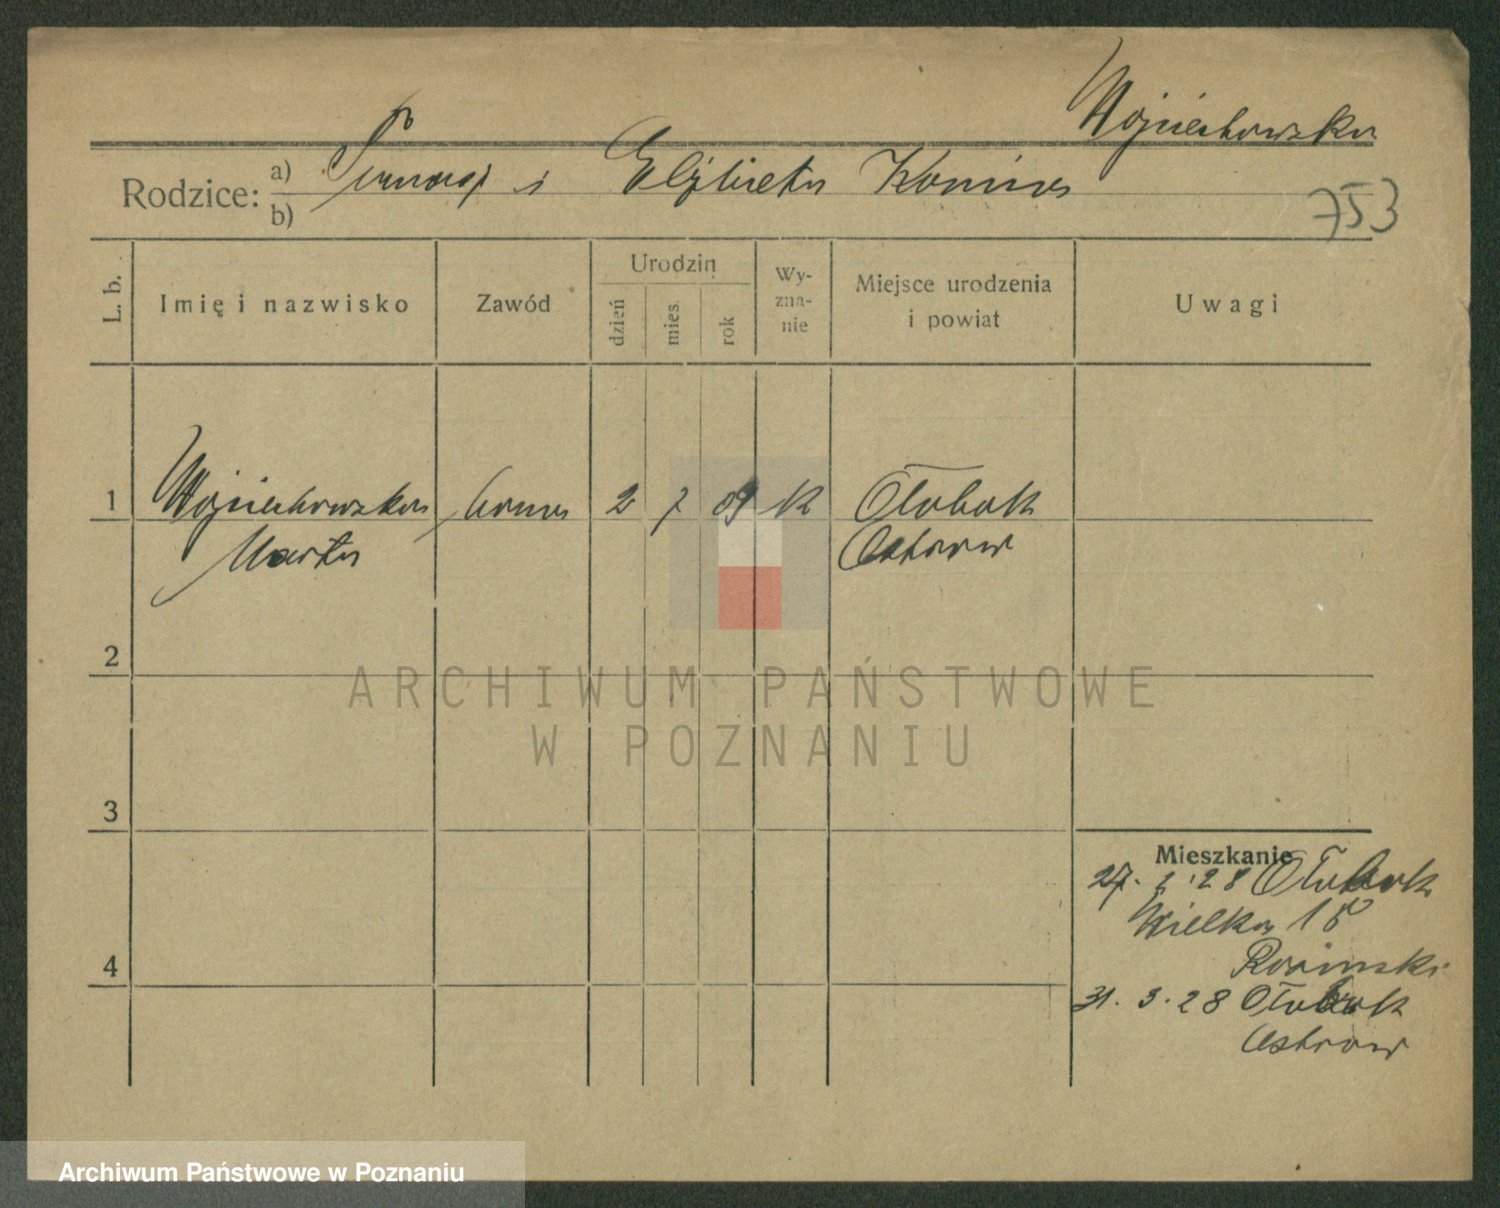 Wojciechowska
Rodzice: a) i Elżbieta
b)
753
L. b.
Imię i nazwisko
Zawód
Urodzin
dzień
mies.
rok
Wy-
zna-
nie
Miejsce urodzenia
i powiat
Uwagi
1 Wojciechowska 2 7 09 K Ołobok
Marta Ostrow
2
3
4
Mieszkanie
27. 28 Ołobok
Wielka 18
31. 3. 28 Ołobok
Ostrow
ARCHIWUM PAŃSTWOWE
W POZNANIU
Archiwum Państwowe w Poznaniu